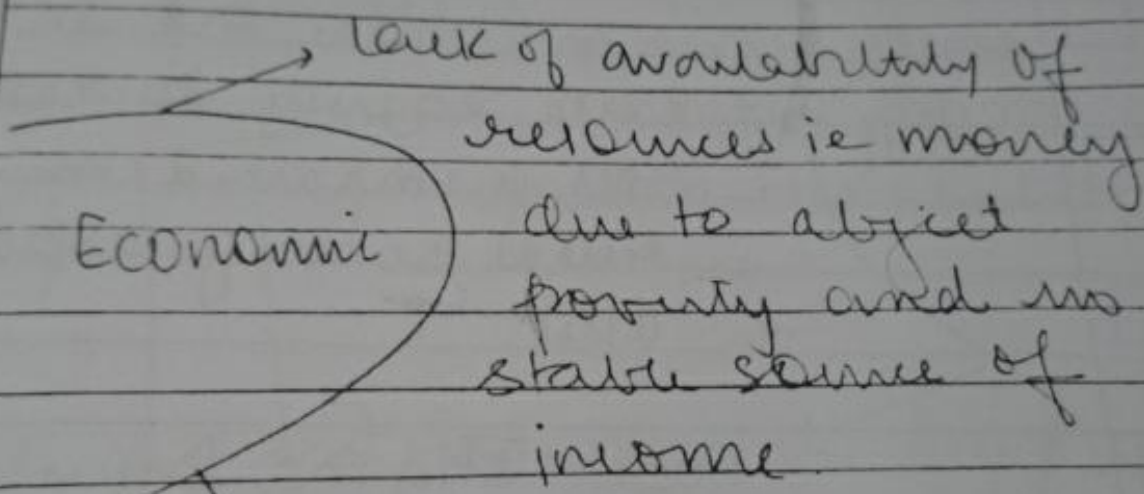 lack of availability of
resources ie money
Economic
due to abject
poverty and no
stable source of
income.